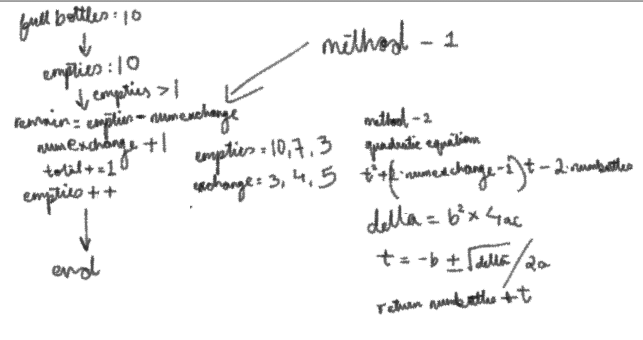 full bottles: 10
empties: 10
empties > 1
remain = empties - numexchange
numexchange + 1
total += 1
empties ++
end
method - 1
empties = 10, 7, 3
exchange = 3, 4, 5
method - 2
quadratic equation
t² + (2·numexchange - 1) t - 2·numbottles
delta = b² × 4ac
t = -b ± √delta / 2a
return numbottles + t